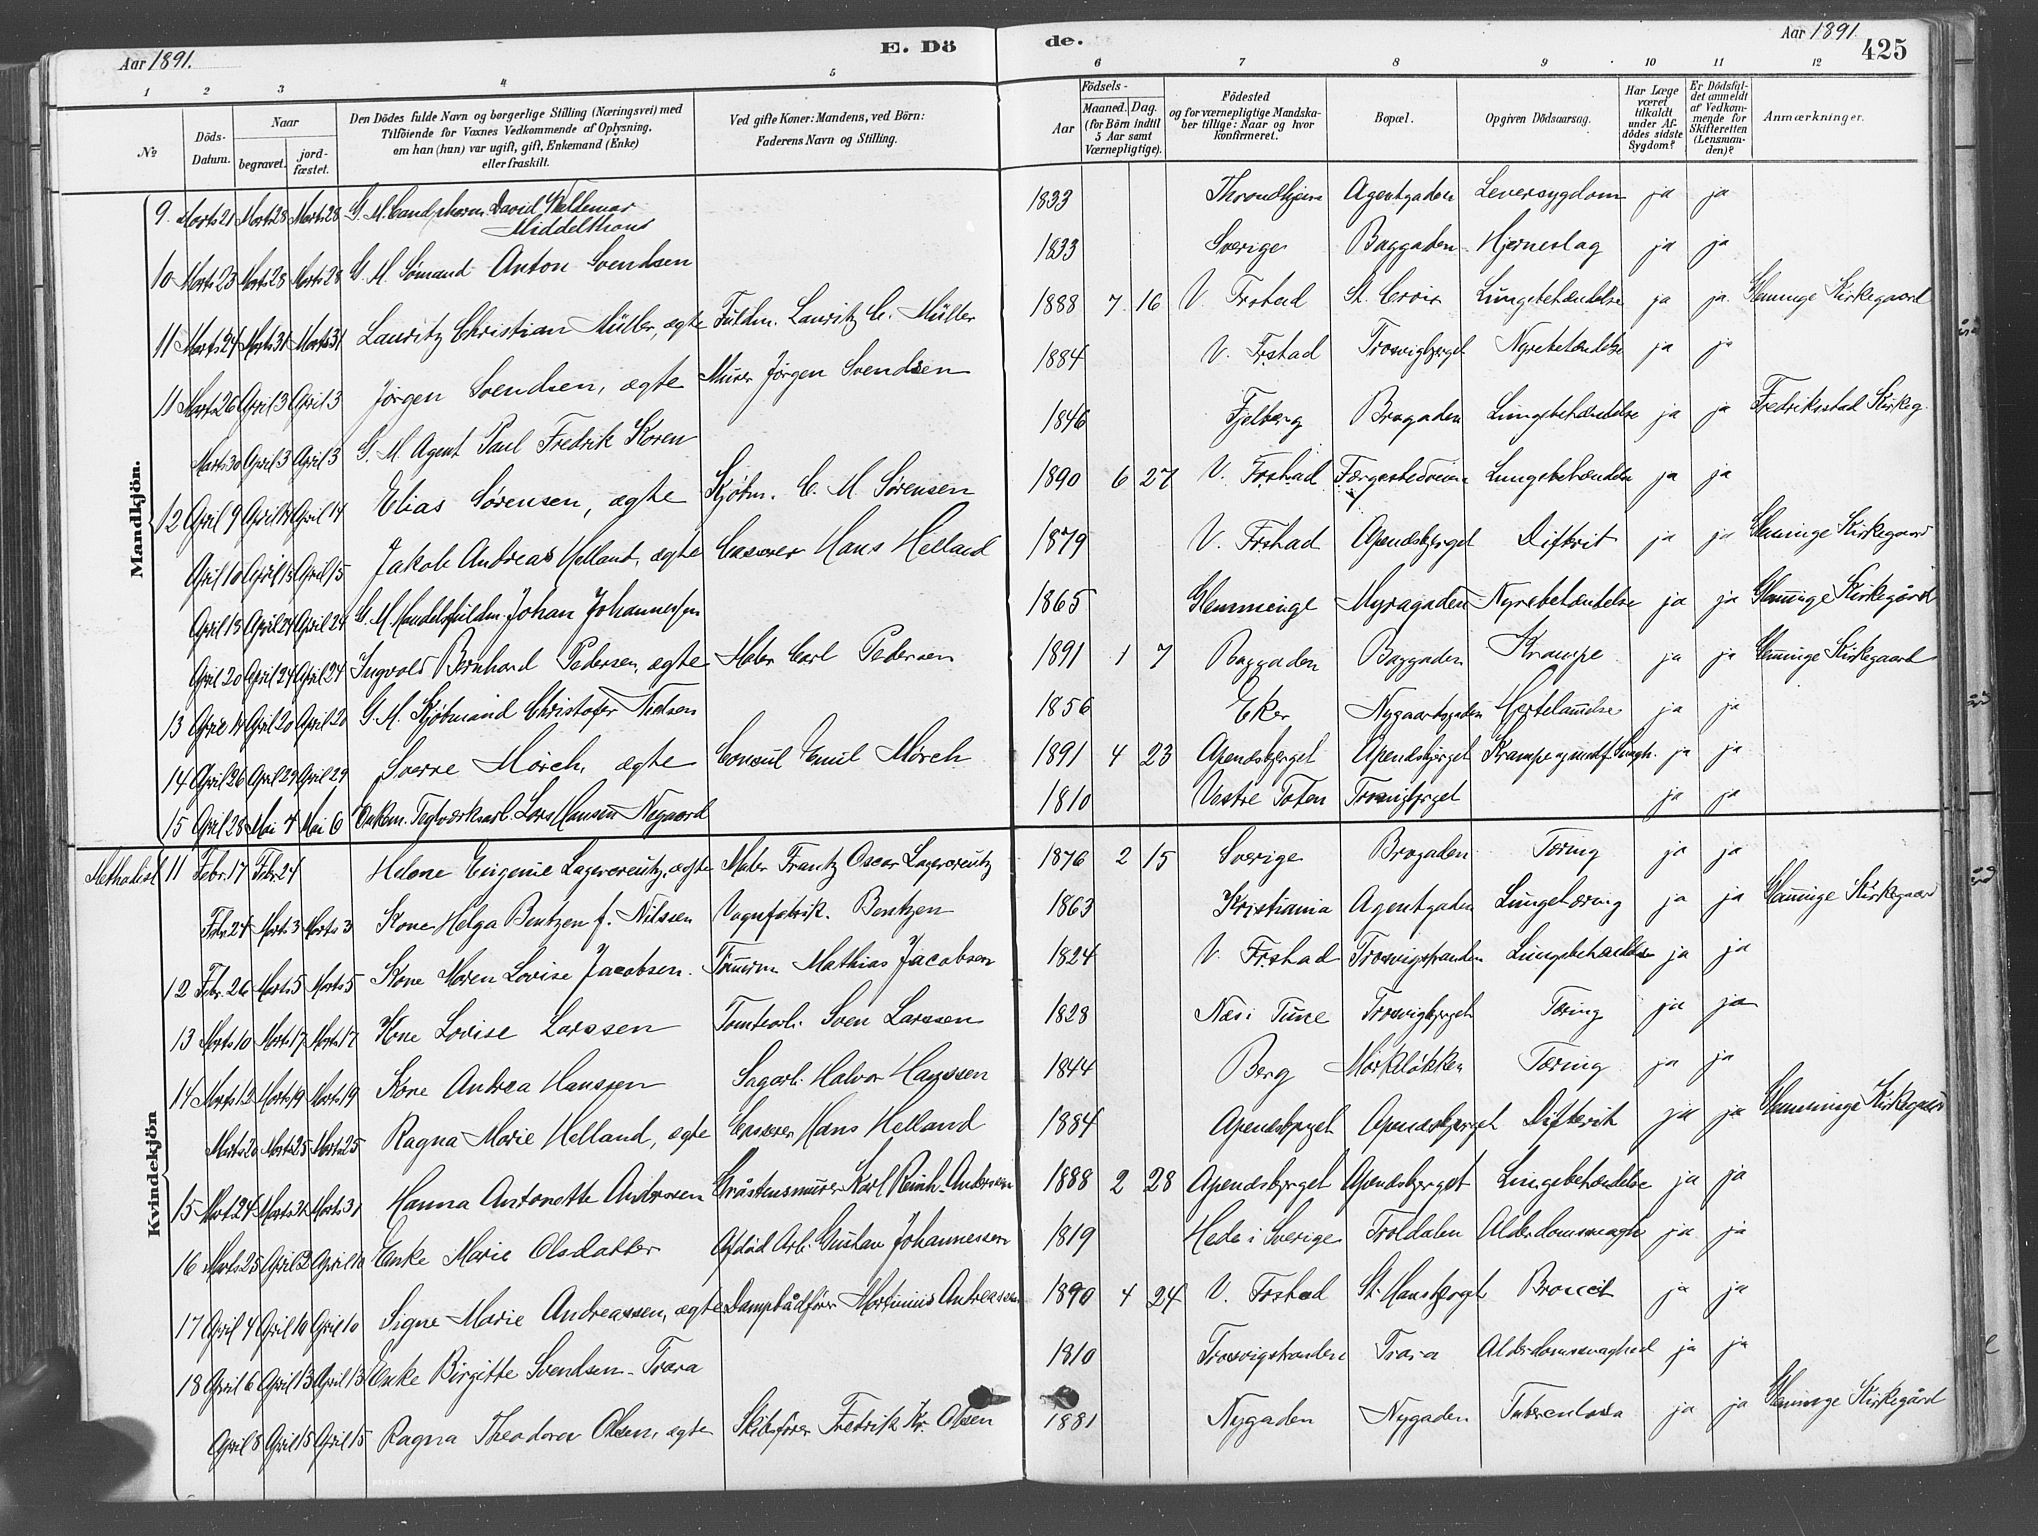 Aar 1891.
E. Dö
de.
Aar 1891
425
1 2 3 4 5 6 7 8 9 10 11 12
No
Döds-Datum.
Naar
begravet.
jord-fæstet.
Den Dödes fulde Navn og borgerlige Stilling (Næringsvei) med
Tilföiende for Voxnes Vedkommende af Oplysning,
om han (hun) var ugift, gift, Enkemand (Enke)
eller fraskilt.
Ved gifte Koner: Mandens, ved Börn:
Faderens Navn og Stilling.
Födsels-
Aar
Maaned. Dag.
(for Börn indtil
5 Aar samt
Værnepligtige).
Födested
og for værnepligtige Mandska-
ber tillige: Naar og hvor
konfirmeret.
Bopæl.
Opgiven Dödsaarsag.
Har Læge
været
tilkaldt
under Af-
dödes sidste
Sygdom?
Er Dödsfal-
det anmeldt
af Vedkom-
mende for
Skifteretten
(Lensman-
den)?
Anmærkninger.
Mandkjön.
9. Marts 21 Marts 28 Marts 28 G. M. Cand. pharm. David Waldemar Middelthons 1833 Throndhjem Agentgaden Leversygdom ja ja
10 Marts 23 Marts 28 Marts 28 G. M. Sömand Anton Svendsen 1833 Sverige Baggaden Hjerneslag ja ja
11 Marts 24 Marts 31 Marts 31 Lauritz Christian Müller, ægte Fuldm. Lauritz C. Müller 1888 7 16 V. Frstad St. Croix Lungebetændelse ja ja Glemminge Kirkegaard
11 Marts 26 April 3 April 3 Jørgen Svendsen, ægte Murer Jørgen Svendsen 1884 V. Frstad Trosvigbjerget Nyrebetændelse ja ja
Marts 30 April 3 April 3 G. M. Agent Paul Fredrik Koren 1846 Fjelberg Brogaden Lungebetændelse ja ja Fredriksstad Kirkeg.
12 April 9 April 14 April 14 Elias Sørensen, ægte Kjöbm. C. M. Sørensen 1890 6 27 V. Frstad Færgestedveien Lungebetændelse ja ja
April 10 April 15 April 15 Jakob Andreas Helland, ægte Casserer Hans Helland 1879 V. Frstad Apenæsbjerget Difterit ja ja Glemminge Kirkegaard
April 13 April 24 April 24 G. M. Handelsfuldm. Johan Johannessen 1865 Glemminge Myragaden Nyrebetændelse ja ja Glemminge Kirkegård
April 20 April 24 April 24 Ingvald Bernhard Pedersen, ægte Maler Carl Pedersen 1891 1 7 Baggaden Baggaden Krampe ja ja Glemminge Kirkegaard
13 April 14 April 20 April 20 G. M. Kjöbmand Christofer Nielsen 1856 Eker Nygaardsgaden Hjertelamelse ja ja
14 April 26 April 29 April 29 Sverre Mørch, ægte Consul Emil Mørch 1891 4 23 Apenæsbjerget Apenæsbjerget Krampe ja ja
15 April 28 Mai 4 Mai 6 Enkem. Teglværksarb. Lars Hansen Nygaard 1810 Vestre Toten Trosvigbjerget ja ja
Kvindekjön
Methodist 11 Febr. 17 Febr. 24 Helene Eugenie Lagercreutz, ægte Maler Frantz Oscar Lagercreutz 1876 2 15 Sverige Brogaden Tæring ja ja
Febr. 24 Marts 3 Marts 3 Kone Helga Bentzen f. Nilssen Vognfabrik. Bentzen 1863 Kristiania Agentgaden Lungetæring ja ja Glemminge Kirkegaard
12 Febr. 26 Marts 5 Marts 5 Kone Maren Lovise Jacobsen. Tømerm. Mathias Jacobsen 1824 V. Frstad Trosvigstranden Lungebetændelse ja ja
13 Marts 10 Marts 17 Marts 17 Kone Lovise Larssen Tomtearb. Sven Larssen 1828 Næs i Tune Trosvigbjerget Tæring ja ja
14 Marts 12 Marts 19 Marts 19 Kone Andrea Hanssen Sagarb. Halvor Hanssen 1844 Berg Mørkeløkken Tæring ja ja
Marts 20 Marts 25 Marts 25 Ragna Marie Helland, ægte Casserer Hans Helland 1884 Apenæsbjerget Apenæsbjerget Difterit ja ja Glemminge Kirkegaard
15 Marts 24 Marts 31 Marts 31 Hanna Antonette Andersen Gråstensmurer Karl Reinh. Andersen 1888 2 28 Apenæsbjerget Apenæsbjerget Lungebetændelse ja ja
16 Marts 25 April 2 April 10 Enke Marie Olsdatter Afdød Arb. Gustav Johannessen 1819 Hede i Sverige Troldalen Alderdomssvagh. ja ja
17 April 4 April 10 April 10 Signe Marie Andreassen, ægte Dampbådfører Martinius Andreassen 1890 4 24 V. Frstad St. Hansbjerget Broncit ja ja
18 April 6 April 13 April 13 Enke Birgitte Svendsen Trara 1810 Trosvigstranden Trara Alderdomssvaghed ja ja
April 8 April 15 April 15 Ragna Theodora Olsen, ægte Skibsfører Fredrik Kr. Olsen 1881 Nygaden Nygaden Tuberculosa ja ja Glemminge Kirkegård